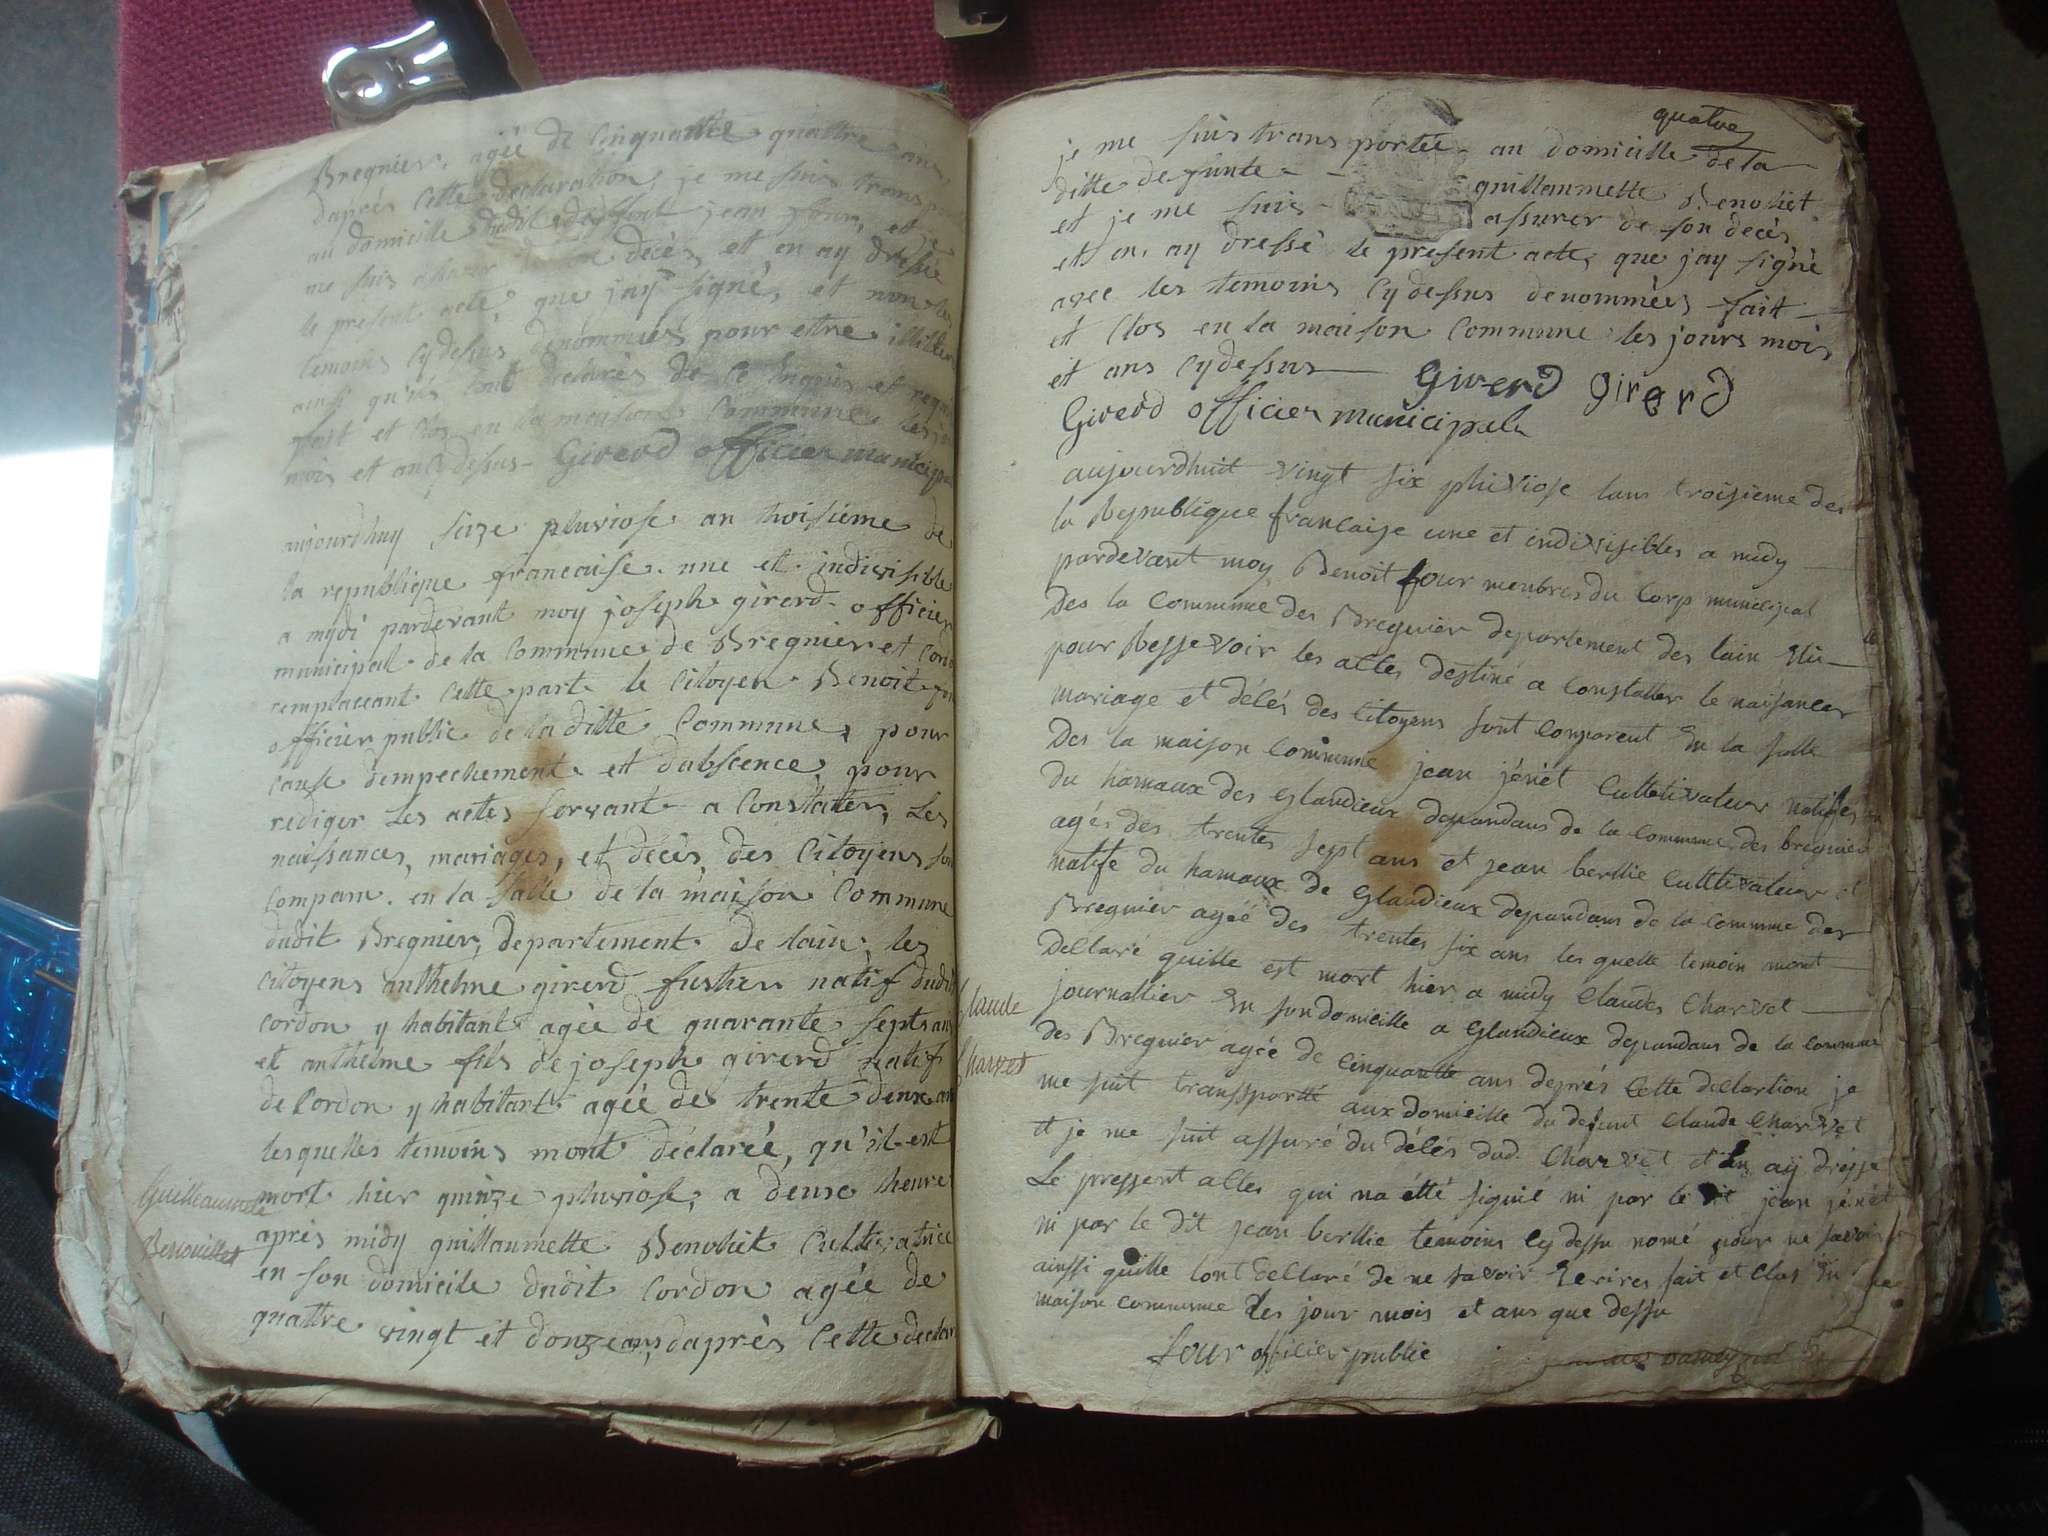 Bregnier, agée de Cinquante quattre ans,
daprés Cette declaration, je me suis
au domicille dudit deffunt jean four, et
me suis assurer decès, et en ay dressé
le present acte, que jay signé, et non les
temoins cydessus denommés pour estre
ainsi qu'ils lont declarés de Ce enquis et
fait et Clos en la maison Commune les
mois et an Cydessus - Girerd officier municipal
aujourdhuy seize pluviose an troisième de
la republique francaise une et indivisible
a mydi pardevant moy joseph girerd officier
municipal de la Commune de Bregnier et Cord
remplacant Cette part le Citoyen Benoit four
officier public de la ditte Commune, pour
cause dempechement et dabscence, pour
rediger Les actes servant a Constater, Les
naissances, mariages, et decès, des Citoyens son
Comparu en la Salle de la maison Commune
dudit Bregnier, departement de lain, les
Citoyens anthelme girerd fustier natif dudit
Cordon y habitant agée de quarante sept ans
et anthelme fils de joseph girerd natif
de Cordon y habitant agée de trente deux ans
lesquelles temoins mont déclarée, qu'il est
mort hier quinze pluviose, a deux heure
après midy guillaumette Benoliet Cultivatrice
en son domicile dudit Cordon agée de
quattre vingt et douze ans, daprès Cette declar
Guilleaumete
Benouillet
quatre
je me suis transportée au domicille de la
ditte defunte guillaumette Benoliet
et je me suis assurer de son decès
et en ay dressé le present acte, que jay signé
avec les temoins Cydessus denommées fait
et Clos en la maison Commune les jours mois
et ans Cydessus Girerd Girerd
Girerd officier municipal
aujourdhuit vingt six pluviose lans troisieme des
la Republique francaise une et indivisibles a midy
pardevant moy Benoit four menbres du Corp municipal
Des la Commune des Bregnier departement des lain Elü
pour Ressevoir les actes destiné a Constatter le naisances
mariage et délés des Citoyens sont Comparent En la salle
Des la maison Commune jean jénét Culttivateur natifes
du hamaux des Glandieux depandans de la Commune des bregnier
agés des trentes sept ans et jean berllie Culttivateur
natife du hamaux de Glandieux depandans de la Commune des
Bregnier agéé des trentes six ans les quelle temoin mont
Dellaré quille est mort hier a midy Claudes Charvet
journallier En son domicille a Glandieux depandans de la Commune
des Bregnier agée de Cinquante ans deprés Cette dellartion je
me suit transporté aux domicille du defunt Claude Charvet
et je me suit assuré du délés dud. Charvet et En ay drésse
Le pressent alles qui na étté signié ni par le dit jean jénét
ni par le dit jean berllie temoins Cy dessu nomé pour ne savoir
ainssi quille lont dellaré de ne savoir Ecrires fait et Clos En
maison commune Les jour mois et ans que dessu
four officier public
Claude
Charvet